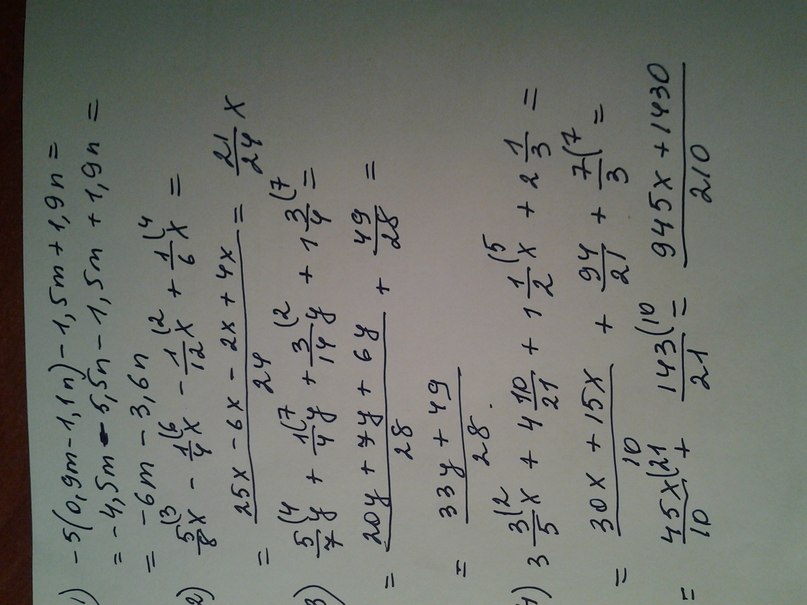 1) -5(0,9m-1,1n)-1,5m+1,9n=
=-4,5m-5,5n-1,5m+1,9n=
=-6m-3,6n
2) 5/8(3x - 1/4(6x - 1/12(2x + 1/6(4x =
= (25x-6x-2x+4x)/24 = 21/24 x
3) 5/7(4y + 1/4(7y + 3/14(2y + 1 3/4(7 =
= (20y+7y+6y)/28 + 49/28 =
= (33y+49)/28.
4) 3 3/5(2x + 4 10/21 + 1 1/2(5x + 2 1/3 =
= (30x+15x)/10 + 94/21 + 7/3(7 =
= 45x/10(21 + 143/21(10 = (945x+1430)/210